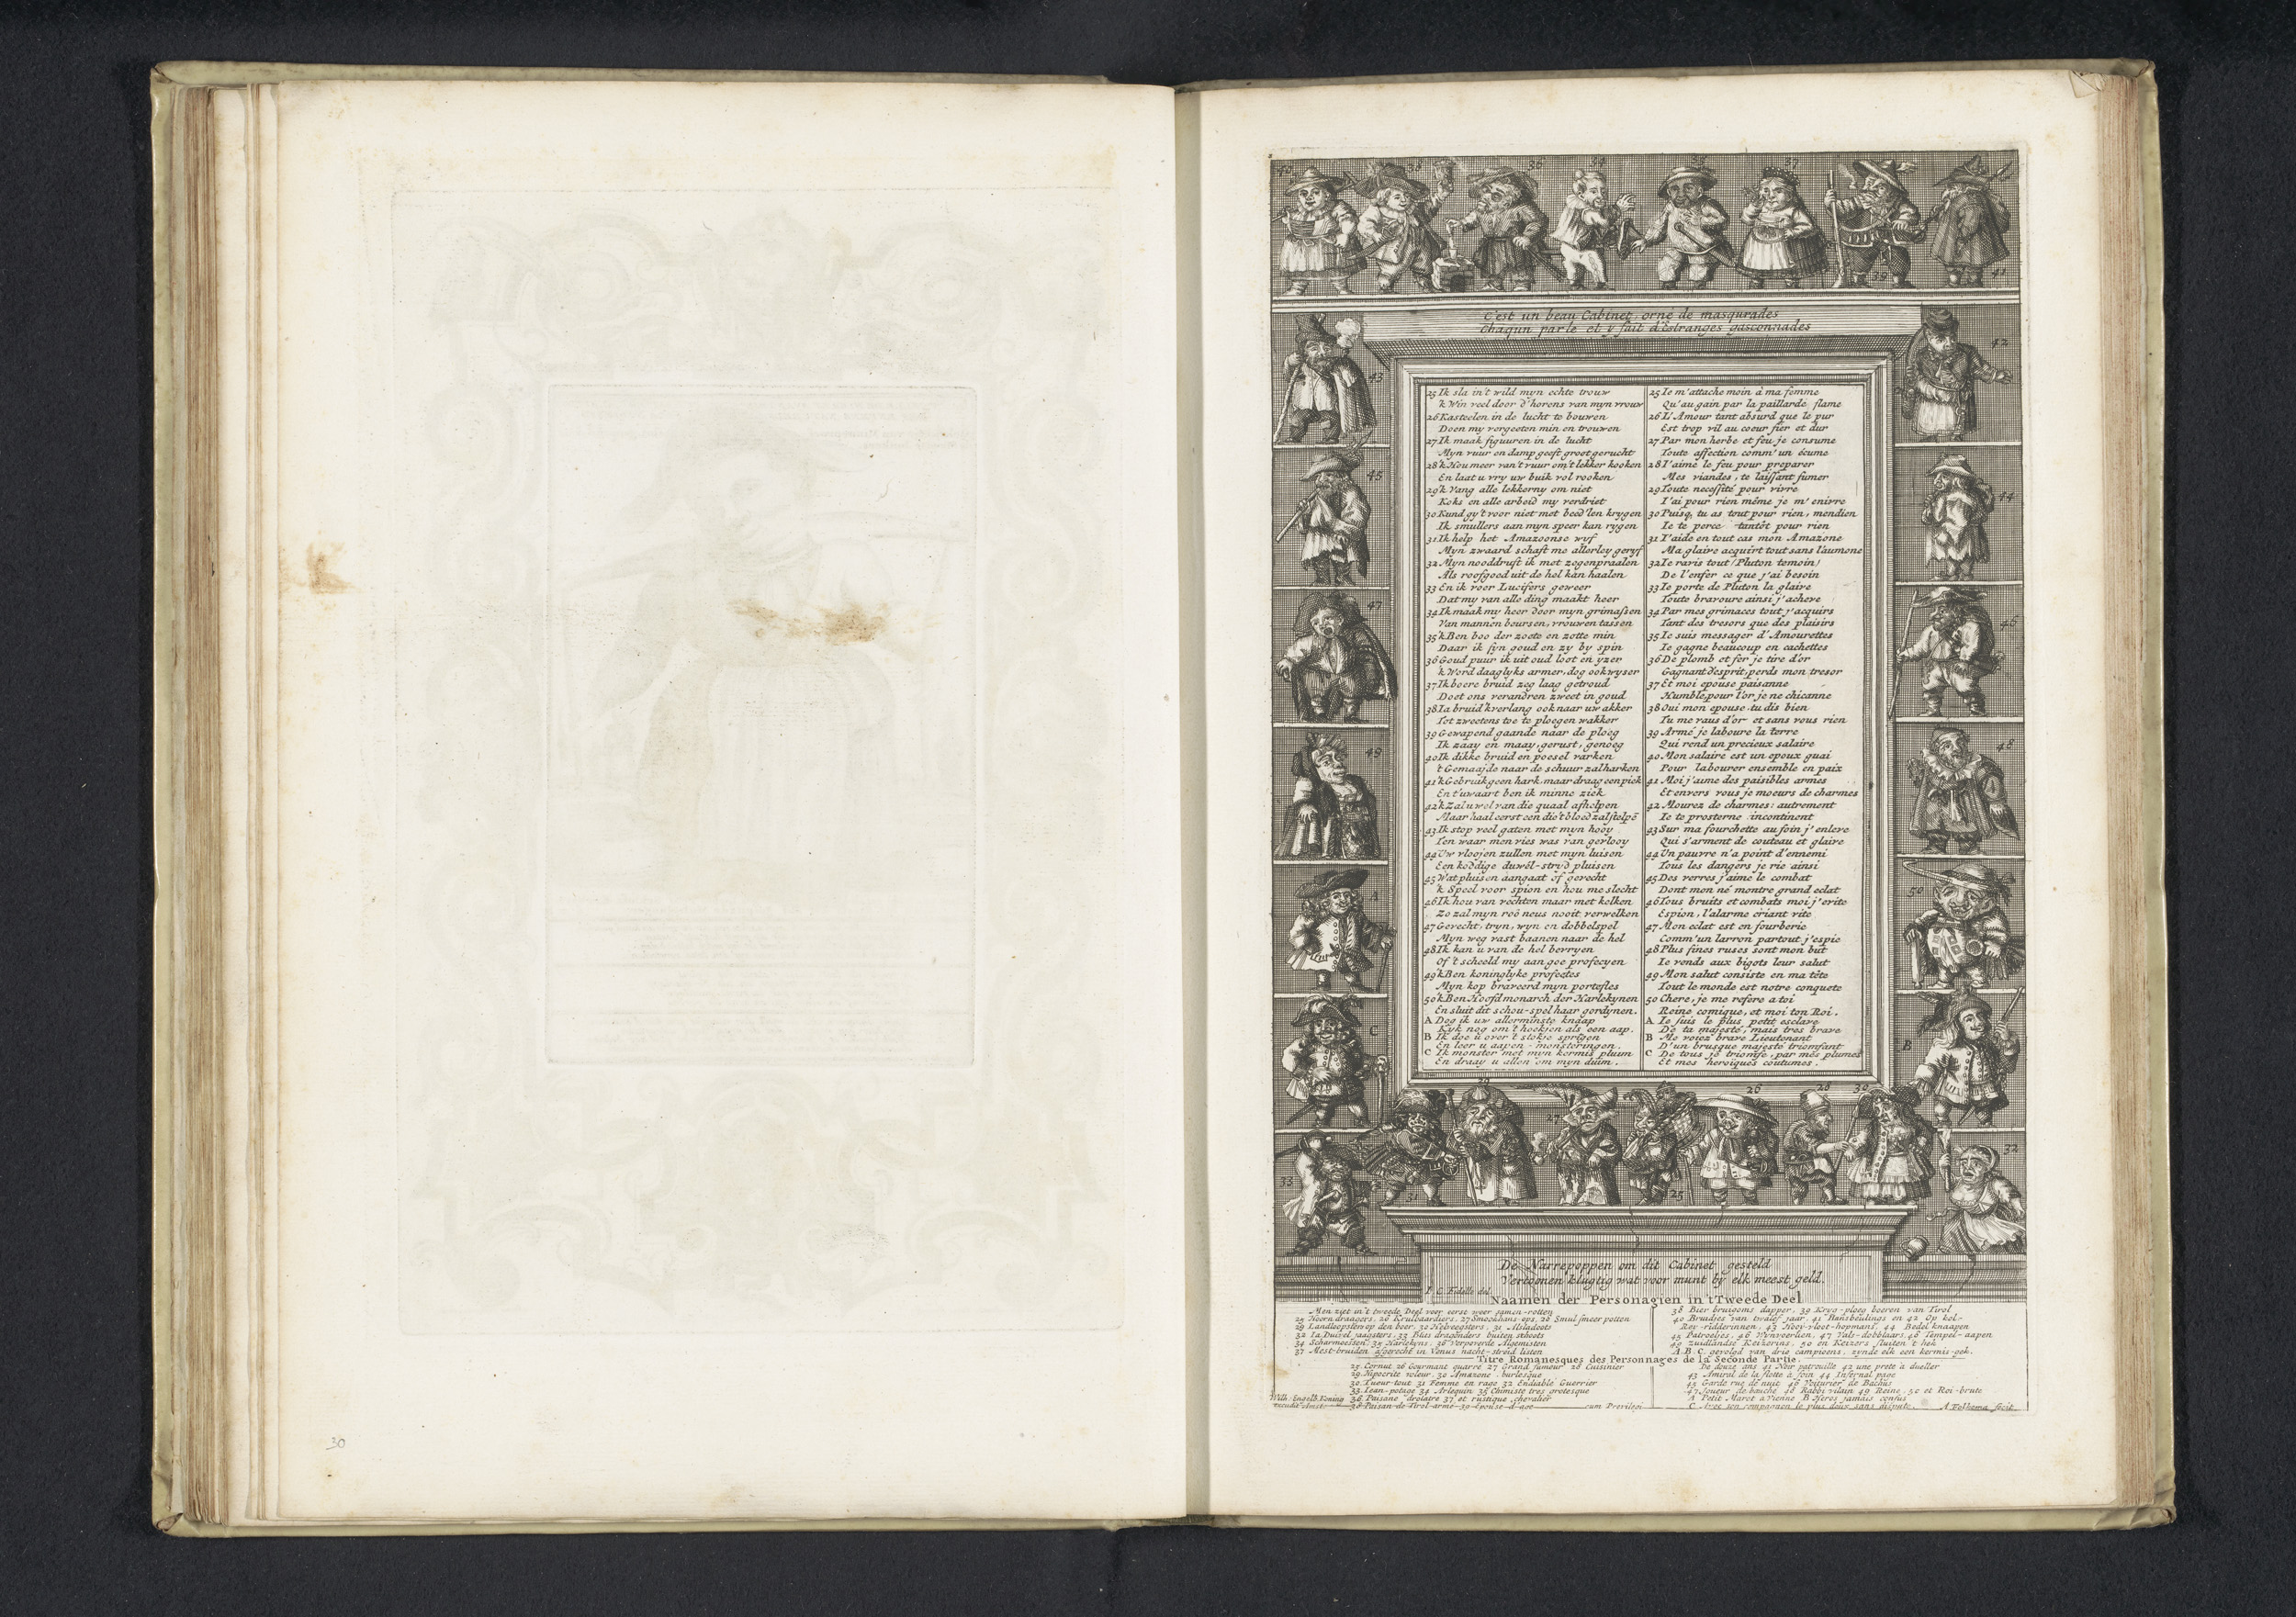 30
C'est un beau Cabinet, orné de masqurades
Chaqun parle et y fait d'estranges gasconnades
25 Ik sla in't wild myn echte trouw
'k Win veel door d'horens van myn vrouw
26 Kasteelen in de lucht te bouwen
Doen my vergeeten min en trouwen
27 Ik maak figuuren in de lucht
Myn vuur en damp geeft groot gerucht
28 'k Hou meer van't vuur om't lekker kooken
En laat u vry uw buik vol rooken
29 'k Vang alle lekkerny om niet
Koks en alle arbeid my verdriet
30 Kund gy't voor niet met beed'len krygen
Ik smullers aan myn speer kan rygen
31 Ik help het Amazoonse wyf
Myn zwaard schaft me allerley geryf
32 Myn nooddruft ik met zegenpraalen
Als roofgoed uit de hel kan haalen
33 En ik voer Lucifers geweer
Dat my van alle ding maakt heer
34 Ik maak my heer door myn grimassen
Van mannen beursen, vrouwen tassen
35 'k Ben boo der zoete en zotte min
Daar ik fyn goud en zy by spin
36 Goud puur ik uit oud loot en yzer
'k Word daaglyks armer, dog ook wyser
37 Ik boere bruid zeg laag getroud
Doet ons verandren zweet in goud
38 Ia bruid 'k verlang ook naar uw akker
Tot zweetens toe te ploegen wakker
39 Gewapend gaande naar de ploeg
Ik zaay en maay, gerust, genoeg
40 Ik dikke bruid en poesel varken
't Gemaajde naar de schuur zal harken
41 'k Gebruik geen hark, maar draag een piek
En t'uwaart ben ik minne ziek
42 'k Zal u wel van die quaal afhelpen
Maar haal eerst een die't bloed zal stelpē
43 Ik stop veel gaten met myn hooy
Ten waar men vies was van gevlooy
44 Uw vloojen zullen met myn luisen
Een koddige duwêl-stryd pluisen
45 Wat pluisen aangaat of gevecht
'k Speel voor spion en hou me slecht
46 Ik hou van vechten maar met kelken
Zo zal myn roô neus nooit verwelken
47 Gevecht, tryn, wyn en dobbelspel
Myn weg vast baanen naar de hel
48 Ik kan u van de hel bevryen
Of 't scheeld my aan goe profecyen
49 'k Ben koninglyke profeetes
Myn kop braveerd myn portefles
50 'k Ben Hoofdmonarch der Harlekynen
En sluit dit schou-spel haar gordynen.
A Dog ik uw allerminste knaap
Kyk nog om't hoekjen als een aap.
B Ik doe u over't stokje springen
En leer u aapen-monsteringen.
C Ik monster met myn kermis pluim
En draay u allen om myn duim.
25 Je m'attache moin à ma femme
Qu'au gain par la paillarde flame
26 L'Amour tant absurd que le pur
Est trop vil au coeur fier et dur
27 Par mon herbe et feu je consume
Toute affection comm' un écume
28 J'aime le feu pour preparer
Mes viandes, te laissant fumer
29 Toute necessité pour vivre
J'ai pour rien même je m'enivre
30 Puisq, tu as tout pour rien, mendien
Je te perce tantôt pour rien
31 J'aide en tout cas mon Amazone
Ma glaive acquirt tout sans l'aumone
32 Je ravis tout (Pluton temoin)
De l'enfer ce que j'ai besoin
33 Je porte de Pluton la glaive
Toute bravoure ainsi j'acheve
34 Par mes grimaces tout j'acquirs
Tant des tresors que des plaisirs
35 Je suis messager d'Amourettes
Je gagne beaucoup en cachettes
36 De plomb et fer je tire d'or
Gagnant d'esprit, perds mon tresor
37 Et moi epouse paisanne
Humble, pour l'or je ne chicanne
38 Oui mon epouse tu dis bien
Tu me vaus d'or et sans vous rien
39 Armé je laboure la terre
Qui rend un precieux salaire
40 Mon salaire est un epoux guai
Pour labourer ensemble en paix
41 Moi j'aime des paisibles armes
Et envers vous je moeurs de charmes
42 Mourez de charmes: autrement
Je te prosterne incontinent
43 Sur ma fourchette au foin j'enleve
Qui s'arment de couteau et glaive
44 Un pauvre n'a point d'ennemi
Tous les dangers je rie ainsi
45 Des verres j'aime le combat
Dont mon né montre grand eclat
46 Tous bruits et combats moi j'evite
Espion, l'alarme criant vite
47 Mon eclat est en fourberie
Comm'un larron partout j'espie
48 Plus fines ruses sont mon but
Je vends aux bigots leur salut
49 Mon salut consiste en ma tête
Tout le monde est notre conquete
50 Chere, je me refere a toi
Reine comique, et moi ton Roi.
A Je suis le plus petit esclave
De ta majesté, mais tres brave
B Me voiez brave Lieutenant
D'un brusque majesté triomfant
C De tous je triomfe, par mes plumes
Et mes heroiques coutumes.
De Narrepoppen om dit Cabinet gesteld
Vertoonen klugtig wat voor munt by elk meest geld.
I. C. Fidelle del.
Naamen der Personagien in 't Tweede Deel
Men ziet in't tweede Deel voor eerst weer samen-rotten
25 Hoorn draagers, 26 Krulbaardiers, 27 Smookhans-ops, 28 Smul smeer potten
29 Landloopsters op den beer, 30 Helveegsters, 31 Alsladoots
32 Ia Duivel jaagsters, 33 Blus dragonders buiten schoots
34 Scharmoessen, 35 Harlekyns, 36 Verpoverde Algemisten
37 Mest-bruiden afgerecht in Venus nacht-streid listen
38 Bier bruigoms dapper, 39 Kryg-ploeg boeren van Tirol
40 Bruidjes van twalef jaar, 41 Hansbeulings en 42 Op kol-
Rey-ridderinnen, 43 Hooi-vloot-hopmans, 44 Bedel knaapen
45 Patroeljes, 46 Wynveerlien, 47 Vals-dobblaars, 48 Tempel-aapen
49 zuidlandse Keizerins, 50 en Keizers sluiten 't hek
A. B. C. gevolgd van drie campioens, zynde elk een kermis-gek.
Titre Romanesques des Personnages de la Seconde Partie.
25 Cornut 26 Gourmant quarre 27 Grand fumeur 28 Cuisinier
29 Hipocrite voleur, 30 Amazone burlesque
30 Tueur-tout 31 Femme en rage 32 Endiablé Guerrier
33 Jean-potage 34 Arlequin 35 Chimiste tres grotesque
36 Paisane drolatre 37 et rustique chevalier
38 Paisan de Tirol armé 39 Epouse d'age
De douze ans 41 Noir patrouille 42 une prete à dueller
43 Amiral de la flotte à foin 44 Infernal page
45 Garde rue de nuit 46 Voiturier de Bachus
47 Joueur de bauche 48 Rabbi vilain 49 Reine, 50 et Roi-brute
A Petit Marot a Vienne B Sferes jamais confus
C Avec son compagnon le plus doux sans dispute.
Wilh. Engelb. Koning
excudit Amst.
cum Previlegi
A Folkema fecit.